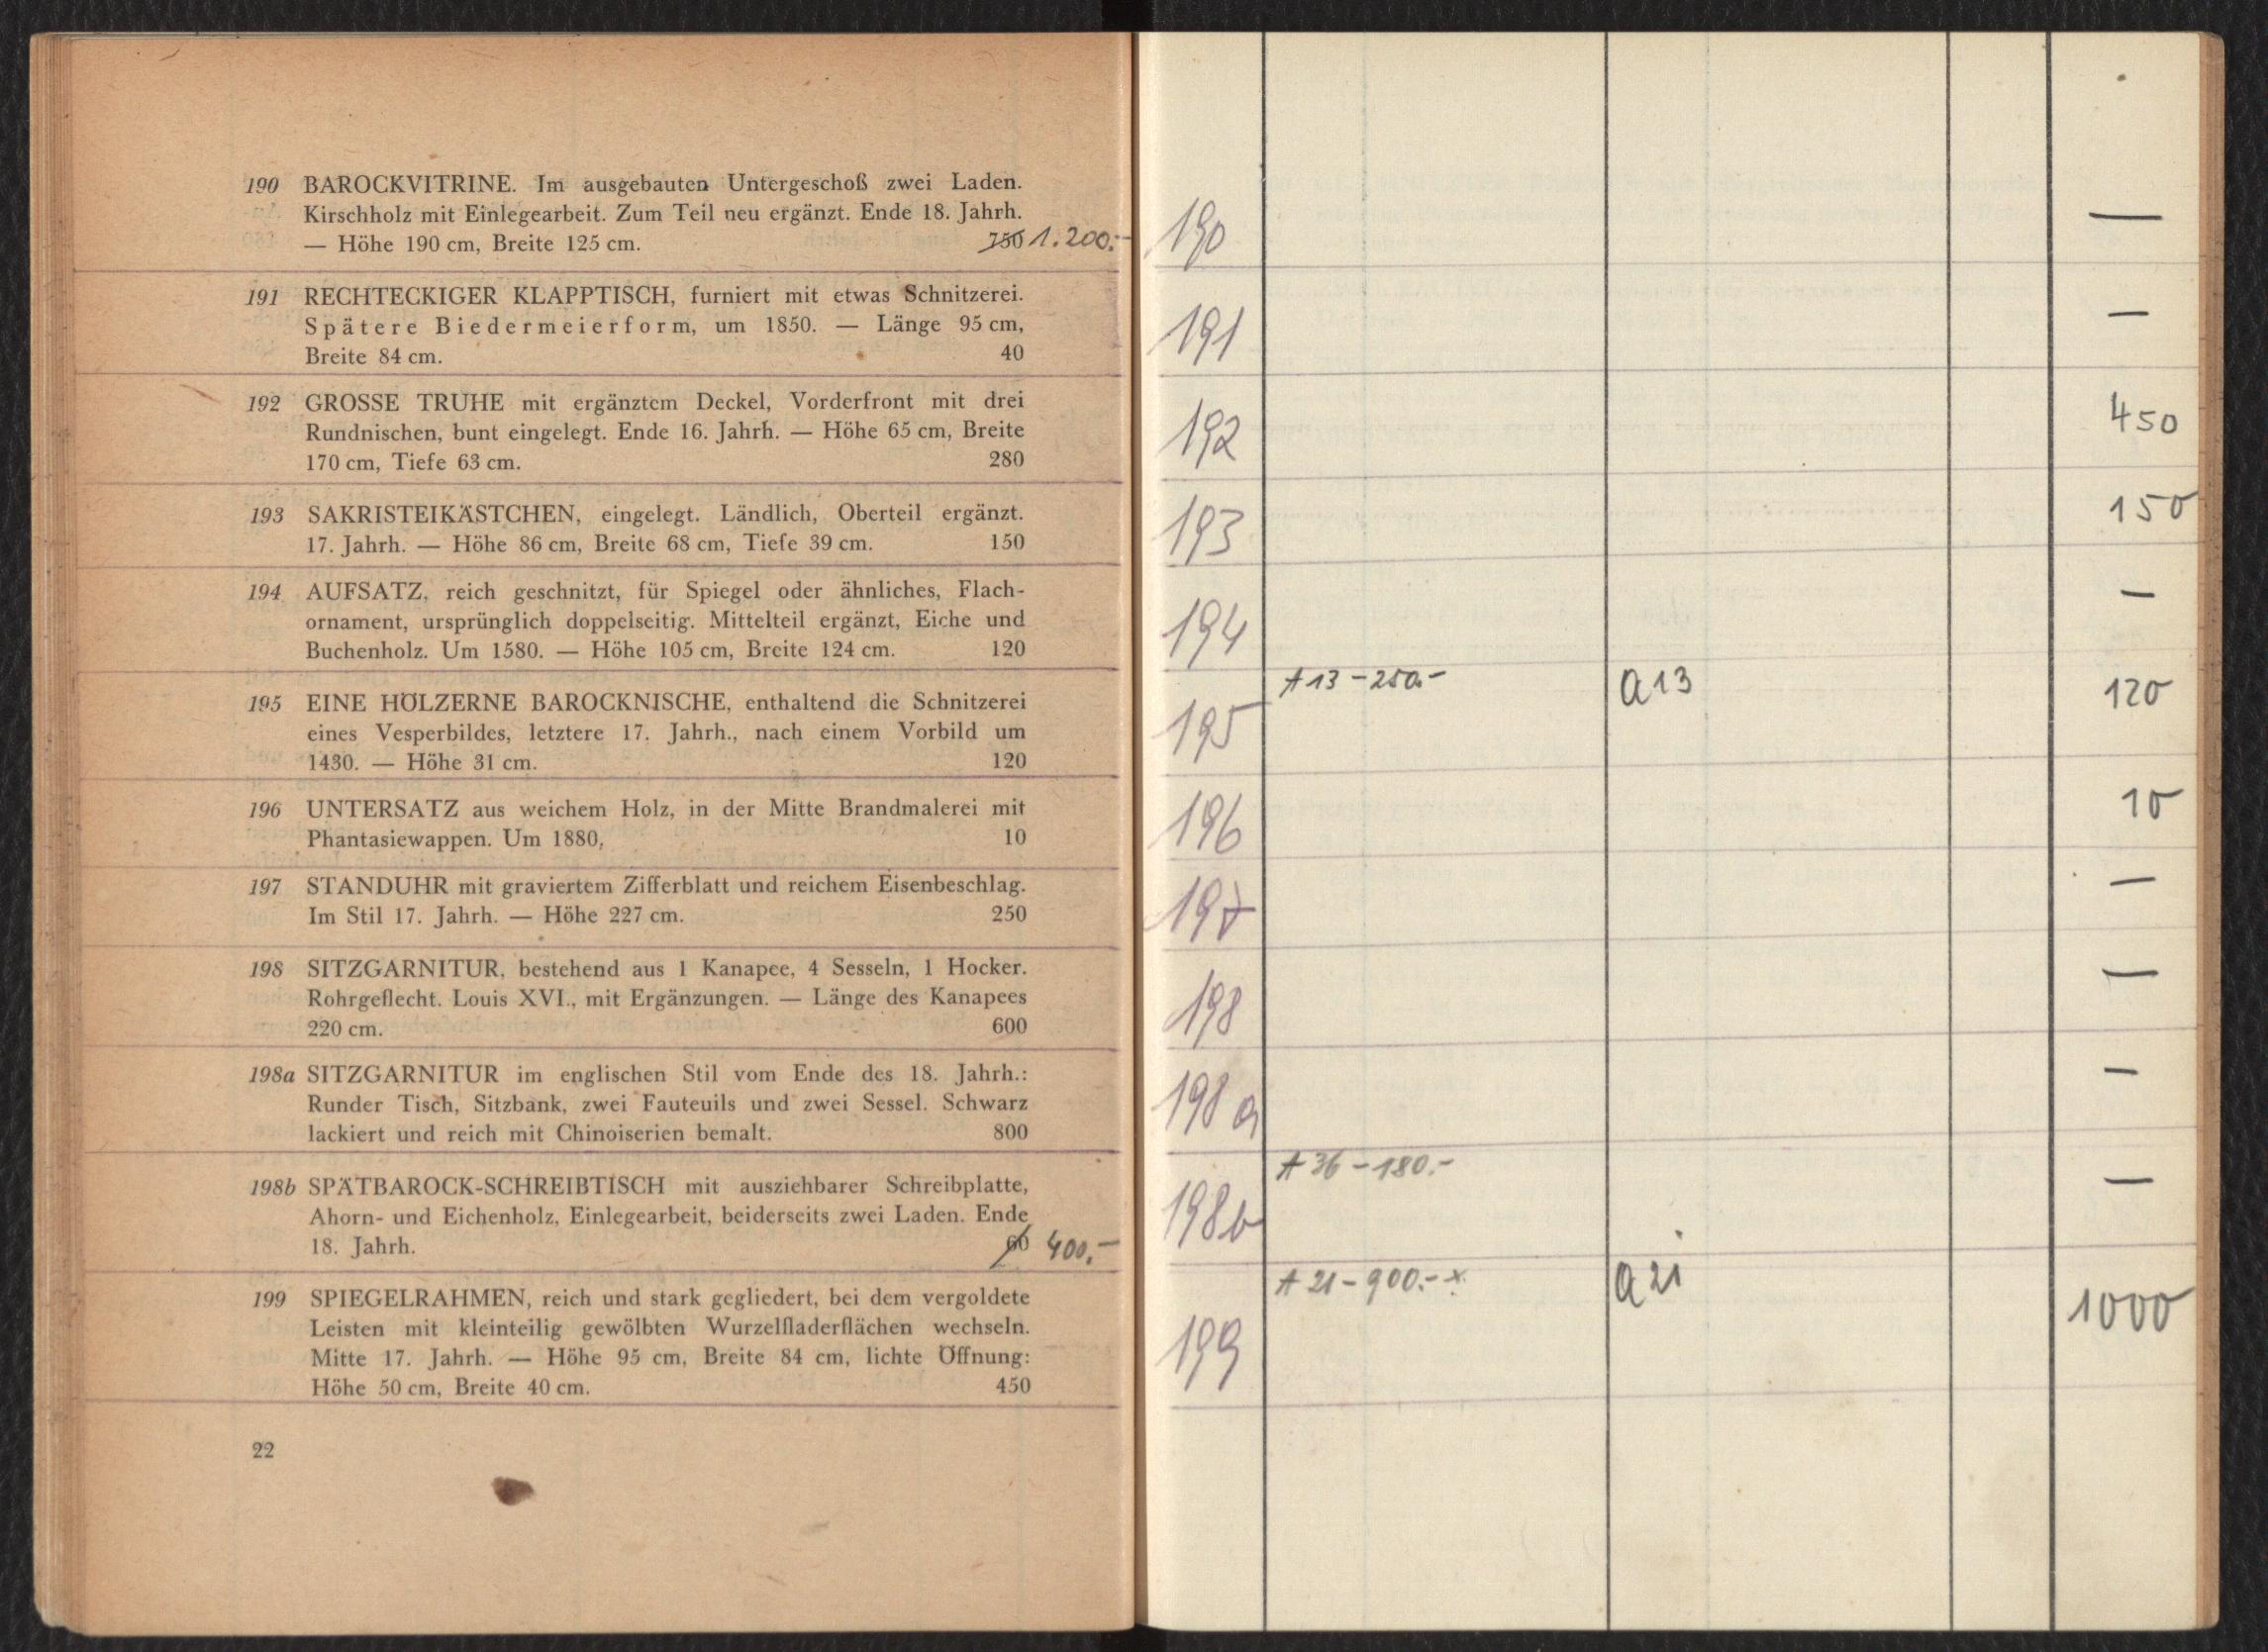 190 BAROCKVITRINE. Im ausgebauten Untergeschoß zwei Laden.
Kirschholz mit Einlegearbeit. Zum Teil neu ergänzt. Ende 18. Jahrh.
— Höhe 190 cm, Breite 125 cm. 1.200.-
191 RECHTECKIGER KLAPPTISCH, furniert mit etwas Schnitzerei.
Spätere Biedermeierform, um 1850. — Länge 95 cm,
Breite 84 cm. 40
192 GROSSE TRUHE mit ergänztem Deckel, Vorderfront mit drei
Rundnischen, bunt eingelegt. Ende 16. Jahrh. — Höhe 65 cm, Breite
170 cm, Tiefe 63 cm. 280
193 SAKRISTEIKÄSTCHEN, eingelegt. Ländlich, Oberteil ergänzt.
17. Jahrh. — Höhe 86 cm, Breite 68 cm, Tiefe 39 cm. 150
194 AUFSATZ, reich geschnitzt, für Spiegel oder ähnliches, Flach-
ornament, ursprünglich doppelseitig. Mittelteil ergänzt, Eiche und
Buchenholz. Um 1580. — Höhe 105 cm, Breite 124 cm. 120
195 EINE HÖLZERNE BAROCKNISCHE, enthaltend die Schnitzerei
eines Vesperbildes, letztere 17. Jahrh., nach einem Vorbild um
1430. — Höhe 31 cm. 120
196 UNTERSATZ aus weichem Holz, in der Mitte Brandmalerei mit
Phantasiewappen. Um 1880. 10
197 STANDUHR mit graviertem Zifferblatt und reichem Eisenbeschlag.
Im Stil 17. Jahrh. — Höhe 227 cm. 250
198 SITZGARNITUR, bestehend aus 1 Kanapee, 4 Sesseln, 1 Hocker.
Rohrgeflecht. Louis XVI., mit Ergänzungen. — Länge des Kanapees
220 cm. 600
198a SITZGARNITUR im englischen Stil vom Ende des 18. Jahrh.:
Runder Tisch, Sitzbank, zwei Fauteuils und zwei Sessel. Schwarz
lackiert und reich mit Chinoiserien bemalt. 800
198b SPÄTBAROCK-SCHREIBTISCH mit ausziehbarer Schreibplatte,
Ahorn- und Eichenholz, Einlegearbeit, beiderseits zwei Laden. Ende
18. Jahrh. 60 400,-
199 SPIEGELRAHMEN, reich und stark gegliedert, bei dem vergoldete
Leisten mit kleinteilig gewölbten Wurzelfladerflächen wechseln.
Mitte 17. Jahrh. — Höhe 95 cm, Breite 84 cm, lichte Öffnung:
Höhe 50 cm, Breite 40 cm. 450
22
190 —
191 —
192 450
193 150
194 —
A 13 - 250.- a 13 120
195
196 10
197 —
198 —
198 a —
A 36 - 180.- —
198b
A 21 - 900.- x a 21 1000
199